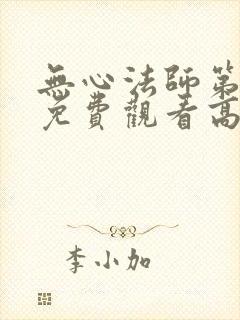 無心法師第
免費觀看高
李小加